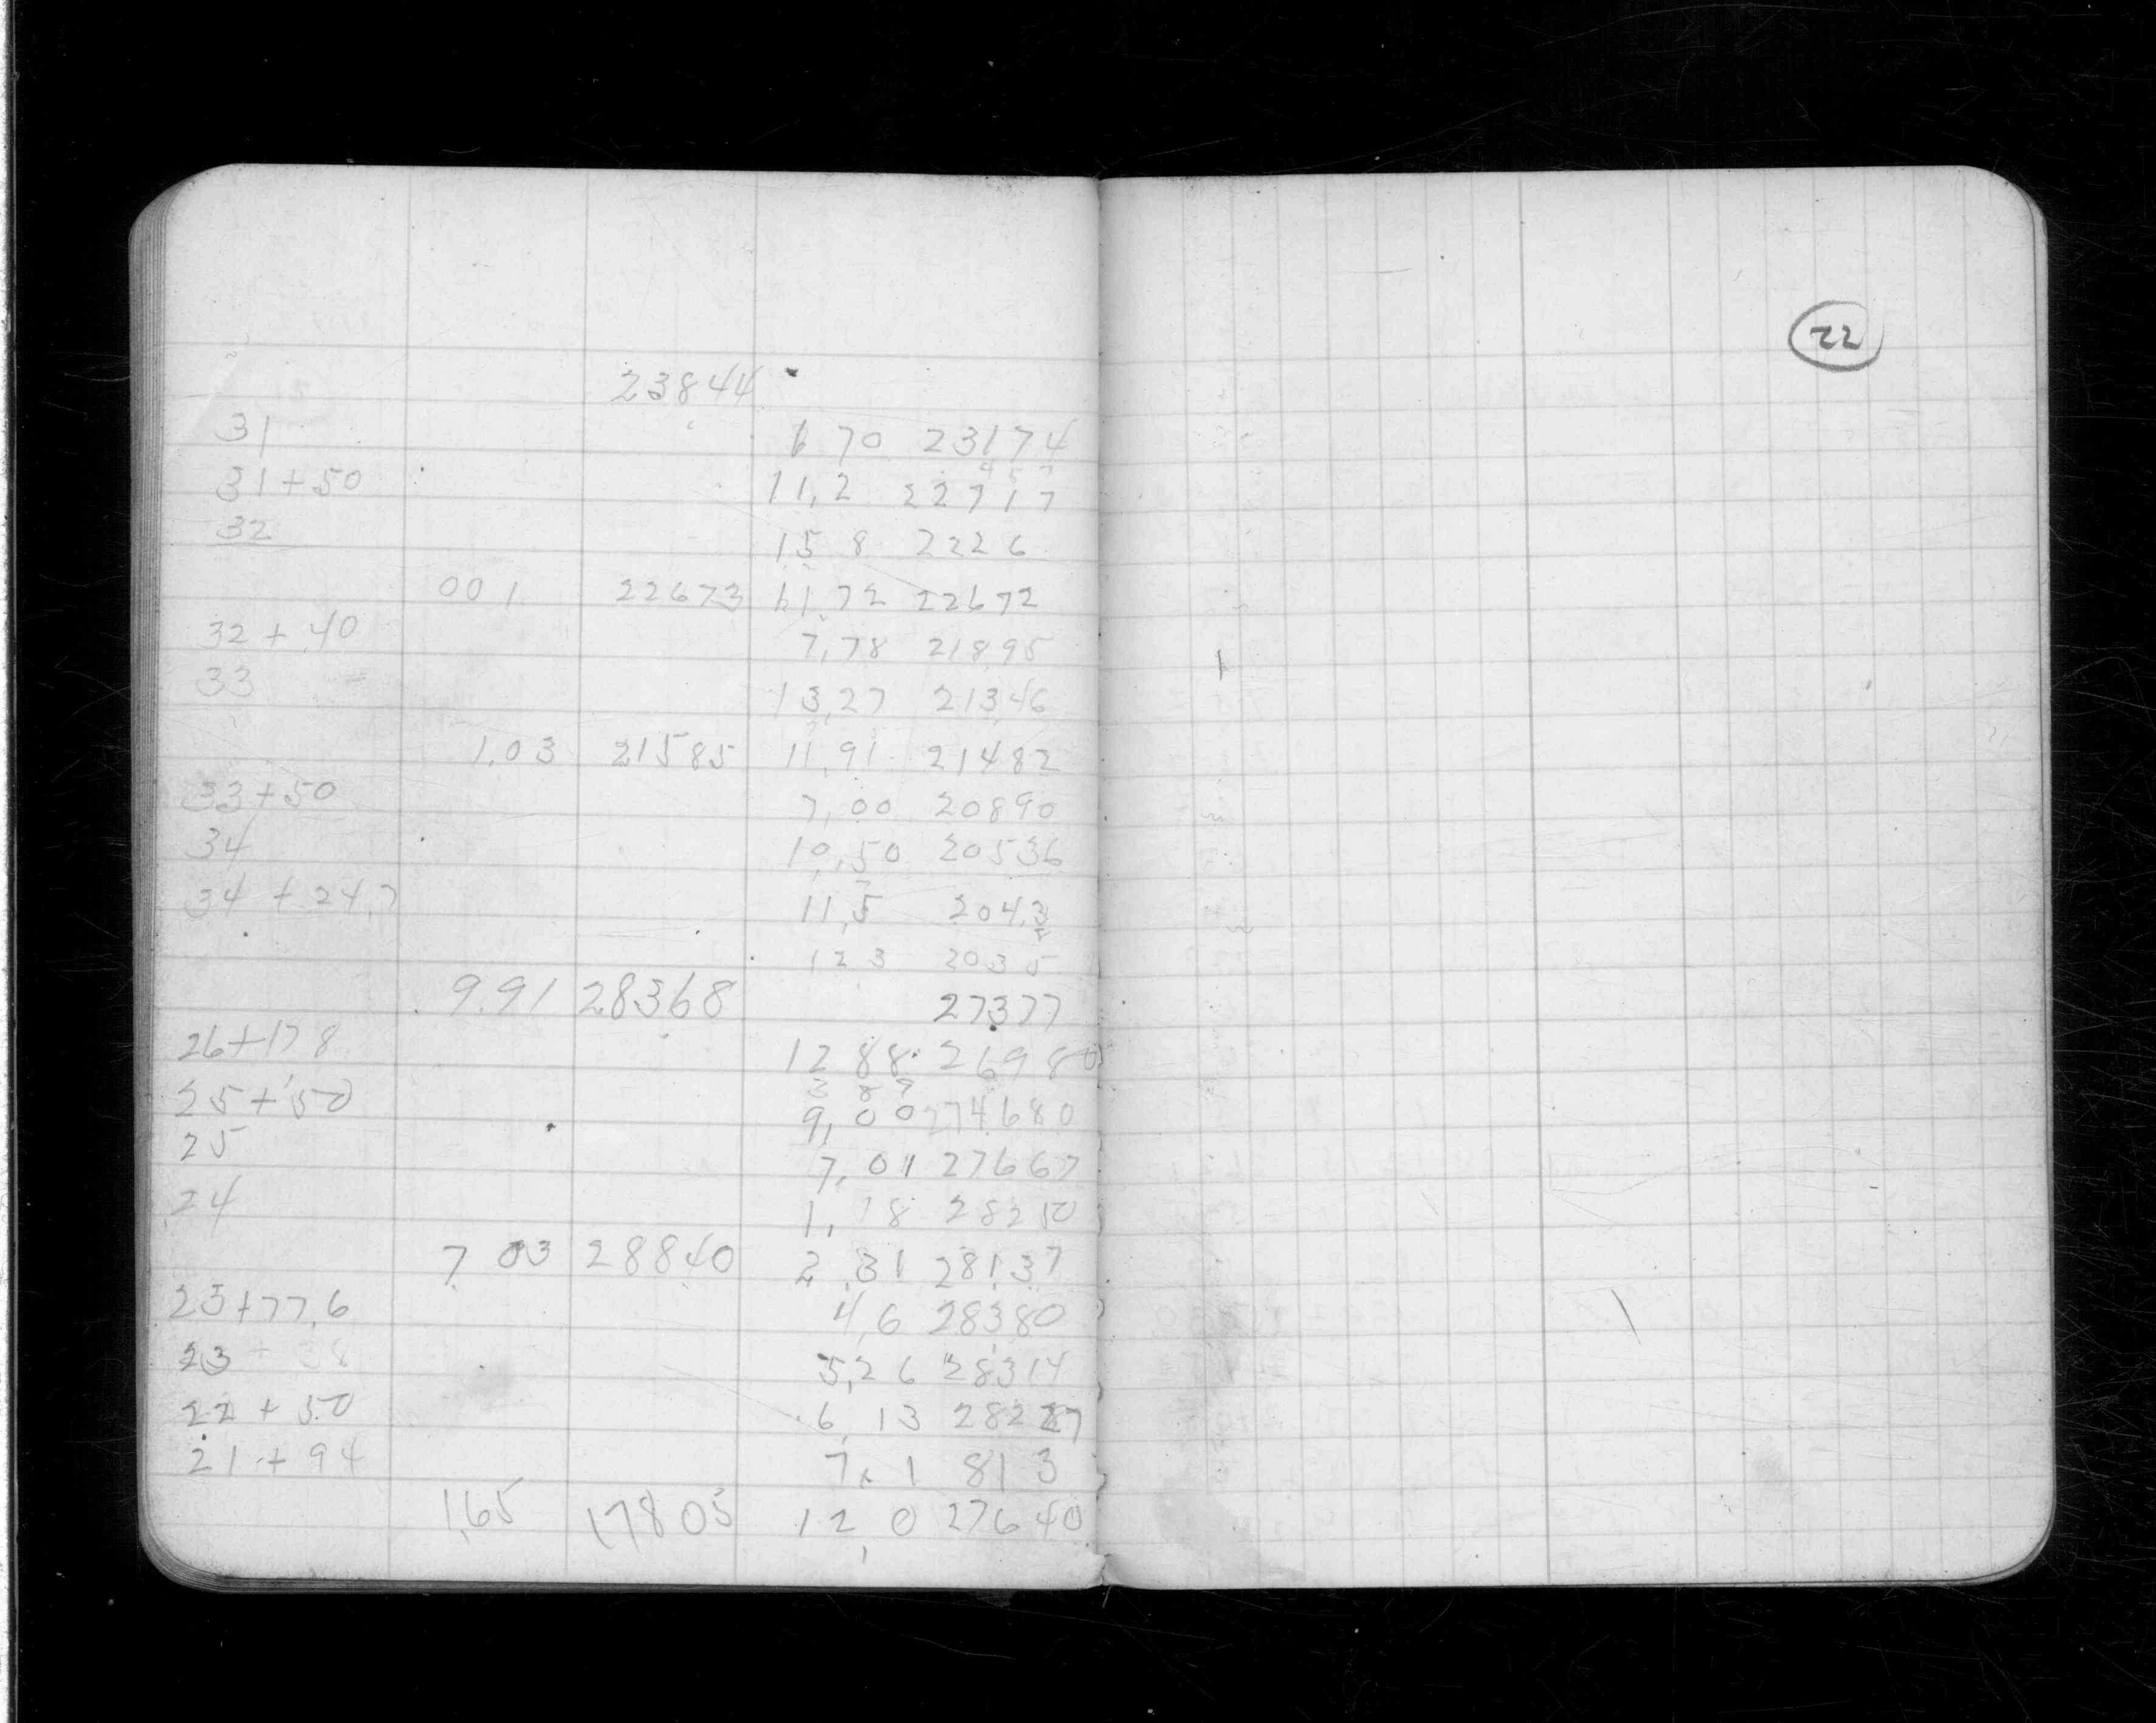 23844
31 6 70 23174
31+50 11,2 22717
32 15 8 2226
001 22673 11,72 22672
32 + 40 7,78 21895
33 13,27 21346
1.03 21585 11,91 21482
33+50 7,00 20890
34 10,50 20536
34 + 24,7 11,5 204.3
12 3 203 5
9.91 28368 27377
26+17 8 12 88 26980
25+50 9,00 274680
25 7,01 27667
24 1,18 28210
7 03 28840 2,31 28137
23+77,6 4,6 28380
23 + 38 5,26 28314
22 + 50 6 13 28227
21 + 94 7,1 813
1,65 17805 12,0 27640
22